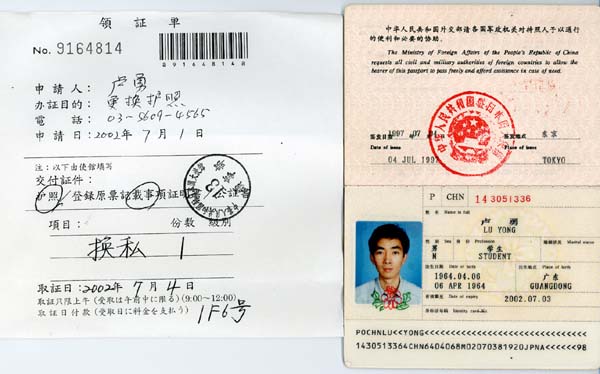 領 証 単
No. 9164814
B9164814B
申 請 人： 卢 勇
办証目的： 更換护照
電 話： 03-5609-4565
申 請 日：2002年 7月 1日
注：以下由使館填写
交付証件：
护照/登録原票記載事項証明/公証
項目： 份数 級別
換私 1
取証日：2002年 7月 4日
取証只限上午(受取は午前中に限る)(9:00~12:00)
取証日付款(受取日に料金を支払う)
1F6号
中华人民共和国外交部请各国军政机关对持照人予以通行
的便利和必要的协助。
The Ministry of Foreign Affairs of the People's Republic of China
requests all civil and military authorities of foreign countries to allow
the bearer of this passport to pass freely and afford assistance in case of need.
签发日期 1997.07.04 签发地点 东京
Date of issue Place of issue
04 JUL 1997 TOKYO
P CHN 143051336
姓 名 Name in full
卢 勇
LU YONG
性别 Sex 身 份 Profession 婚姻状况 Marital status
男 学生
M STUDENT
出生日期 Date of birth 出生地点 Place of birth
1964.04.06 广东
06 APR 1964 GUANGDONG
有效期至 Date of expiry 2002.07.03
身份证号码 Identity card No.
POCHNLU<<YONG<<<<<<<<<<<<<<<<<<<<<<<<<<<<<<<
1430513364CHN6404068M02070381920JPNA<<<<<<98